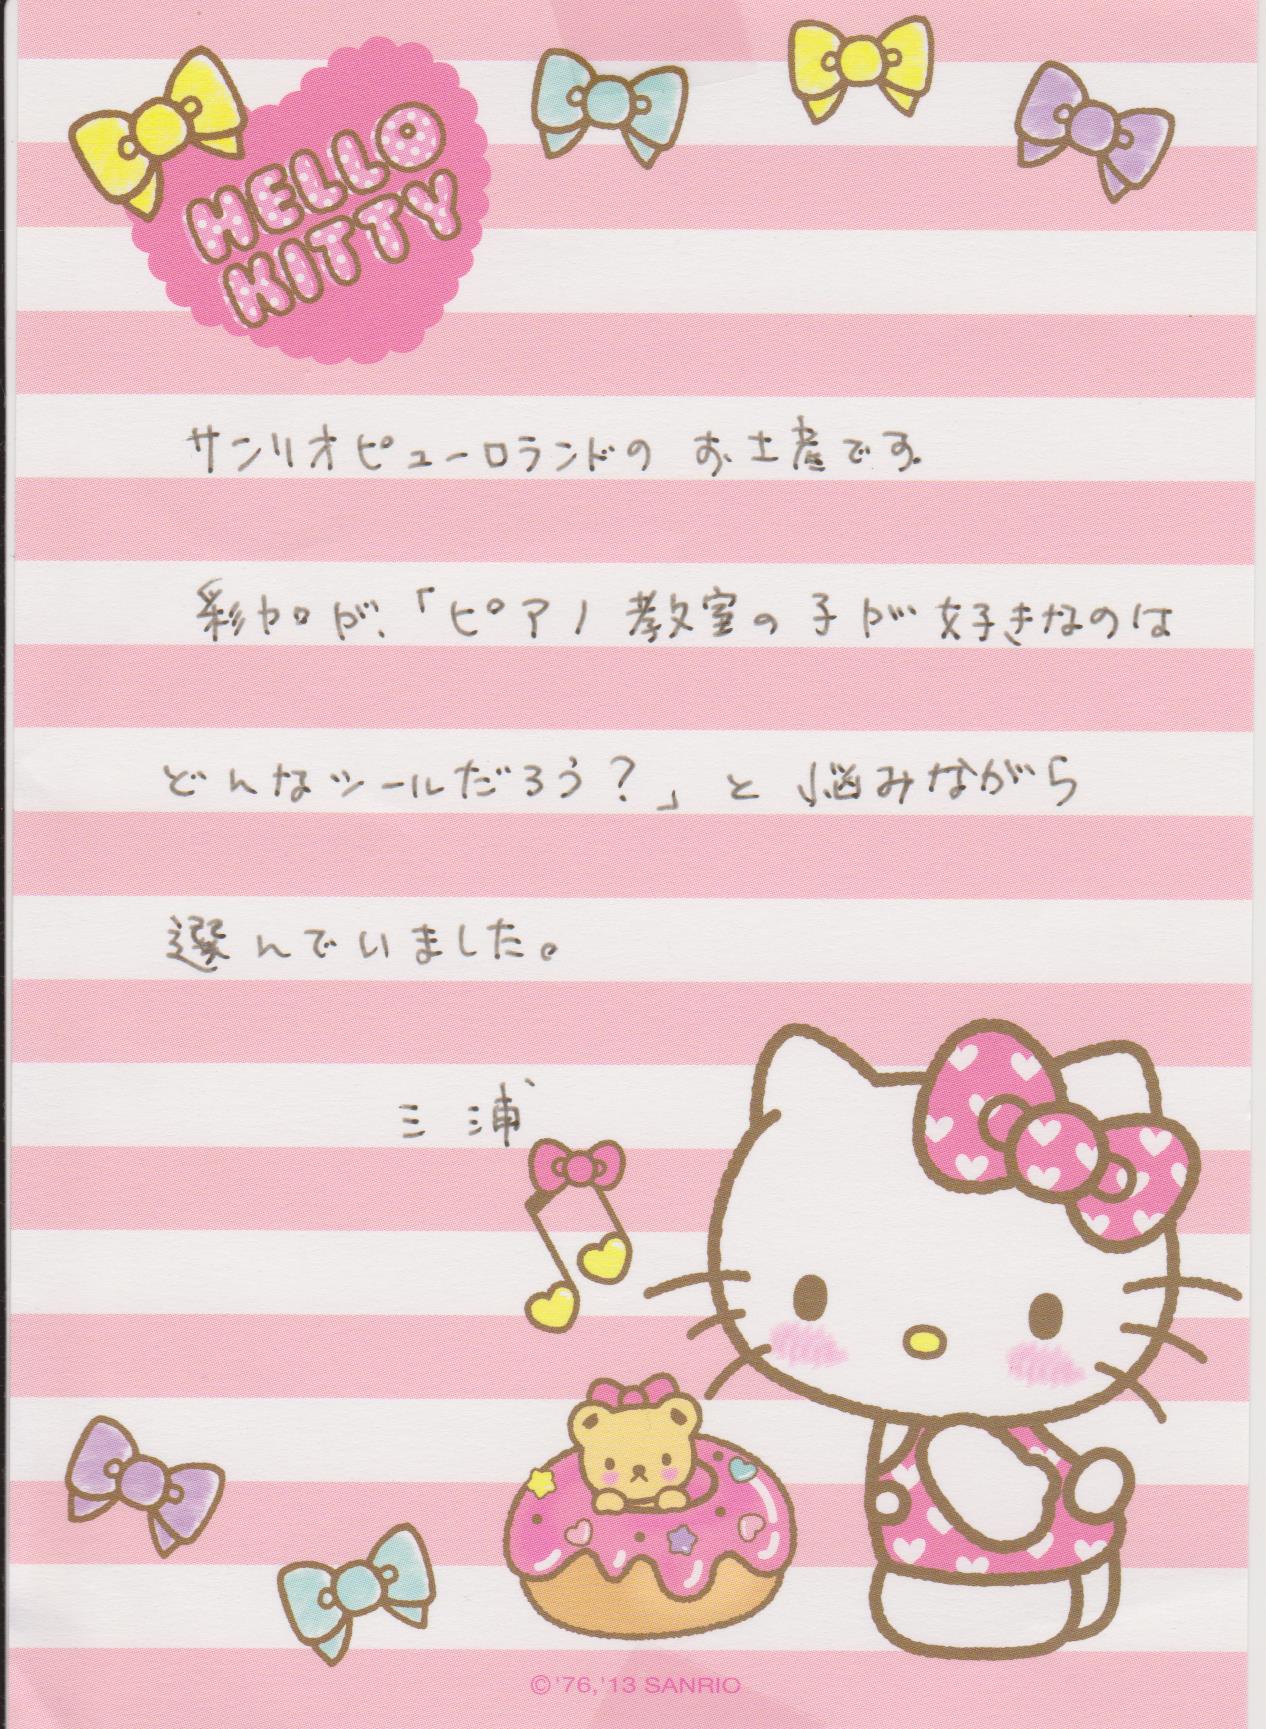 HELLO
KITTY
サンリオピューロランドの お土産です。
彩加が、「ピアノ教室の子が好きなのは
どんなシールだろう？」と悩みながら
選んでいました。
三浦
©'76,'13 SANRIO